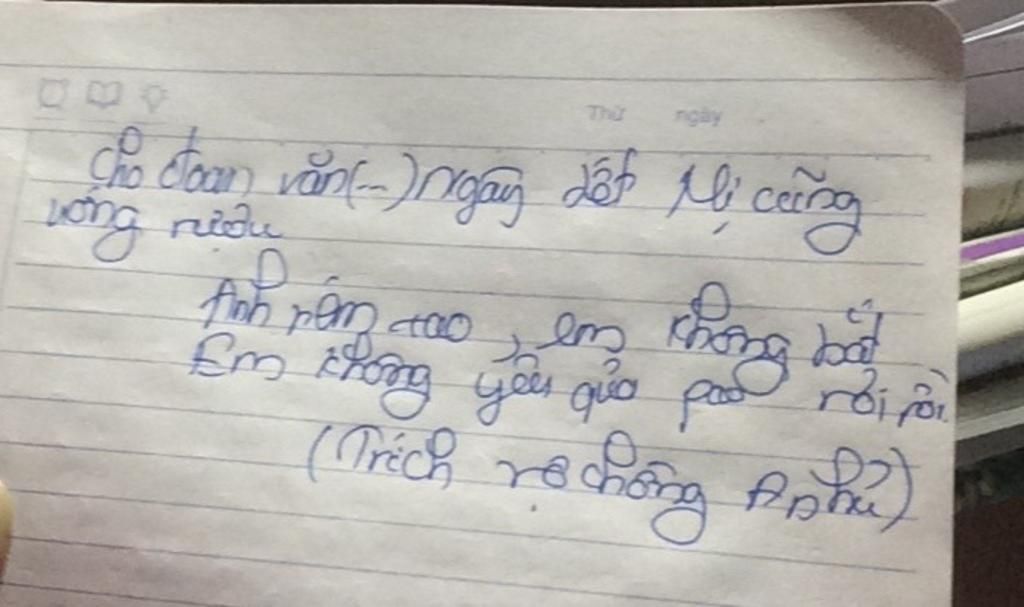 Thứ ngày
Cho đoan văn(--) ngày dết Mị cũng
uống rượu
Anh ném pao, em không bắt
Em không yêu quả pao rơi rồi.
(Trích vợ chồng A phủ)